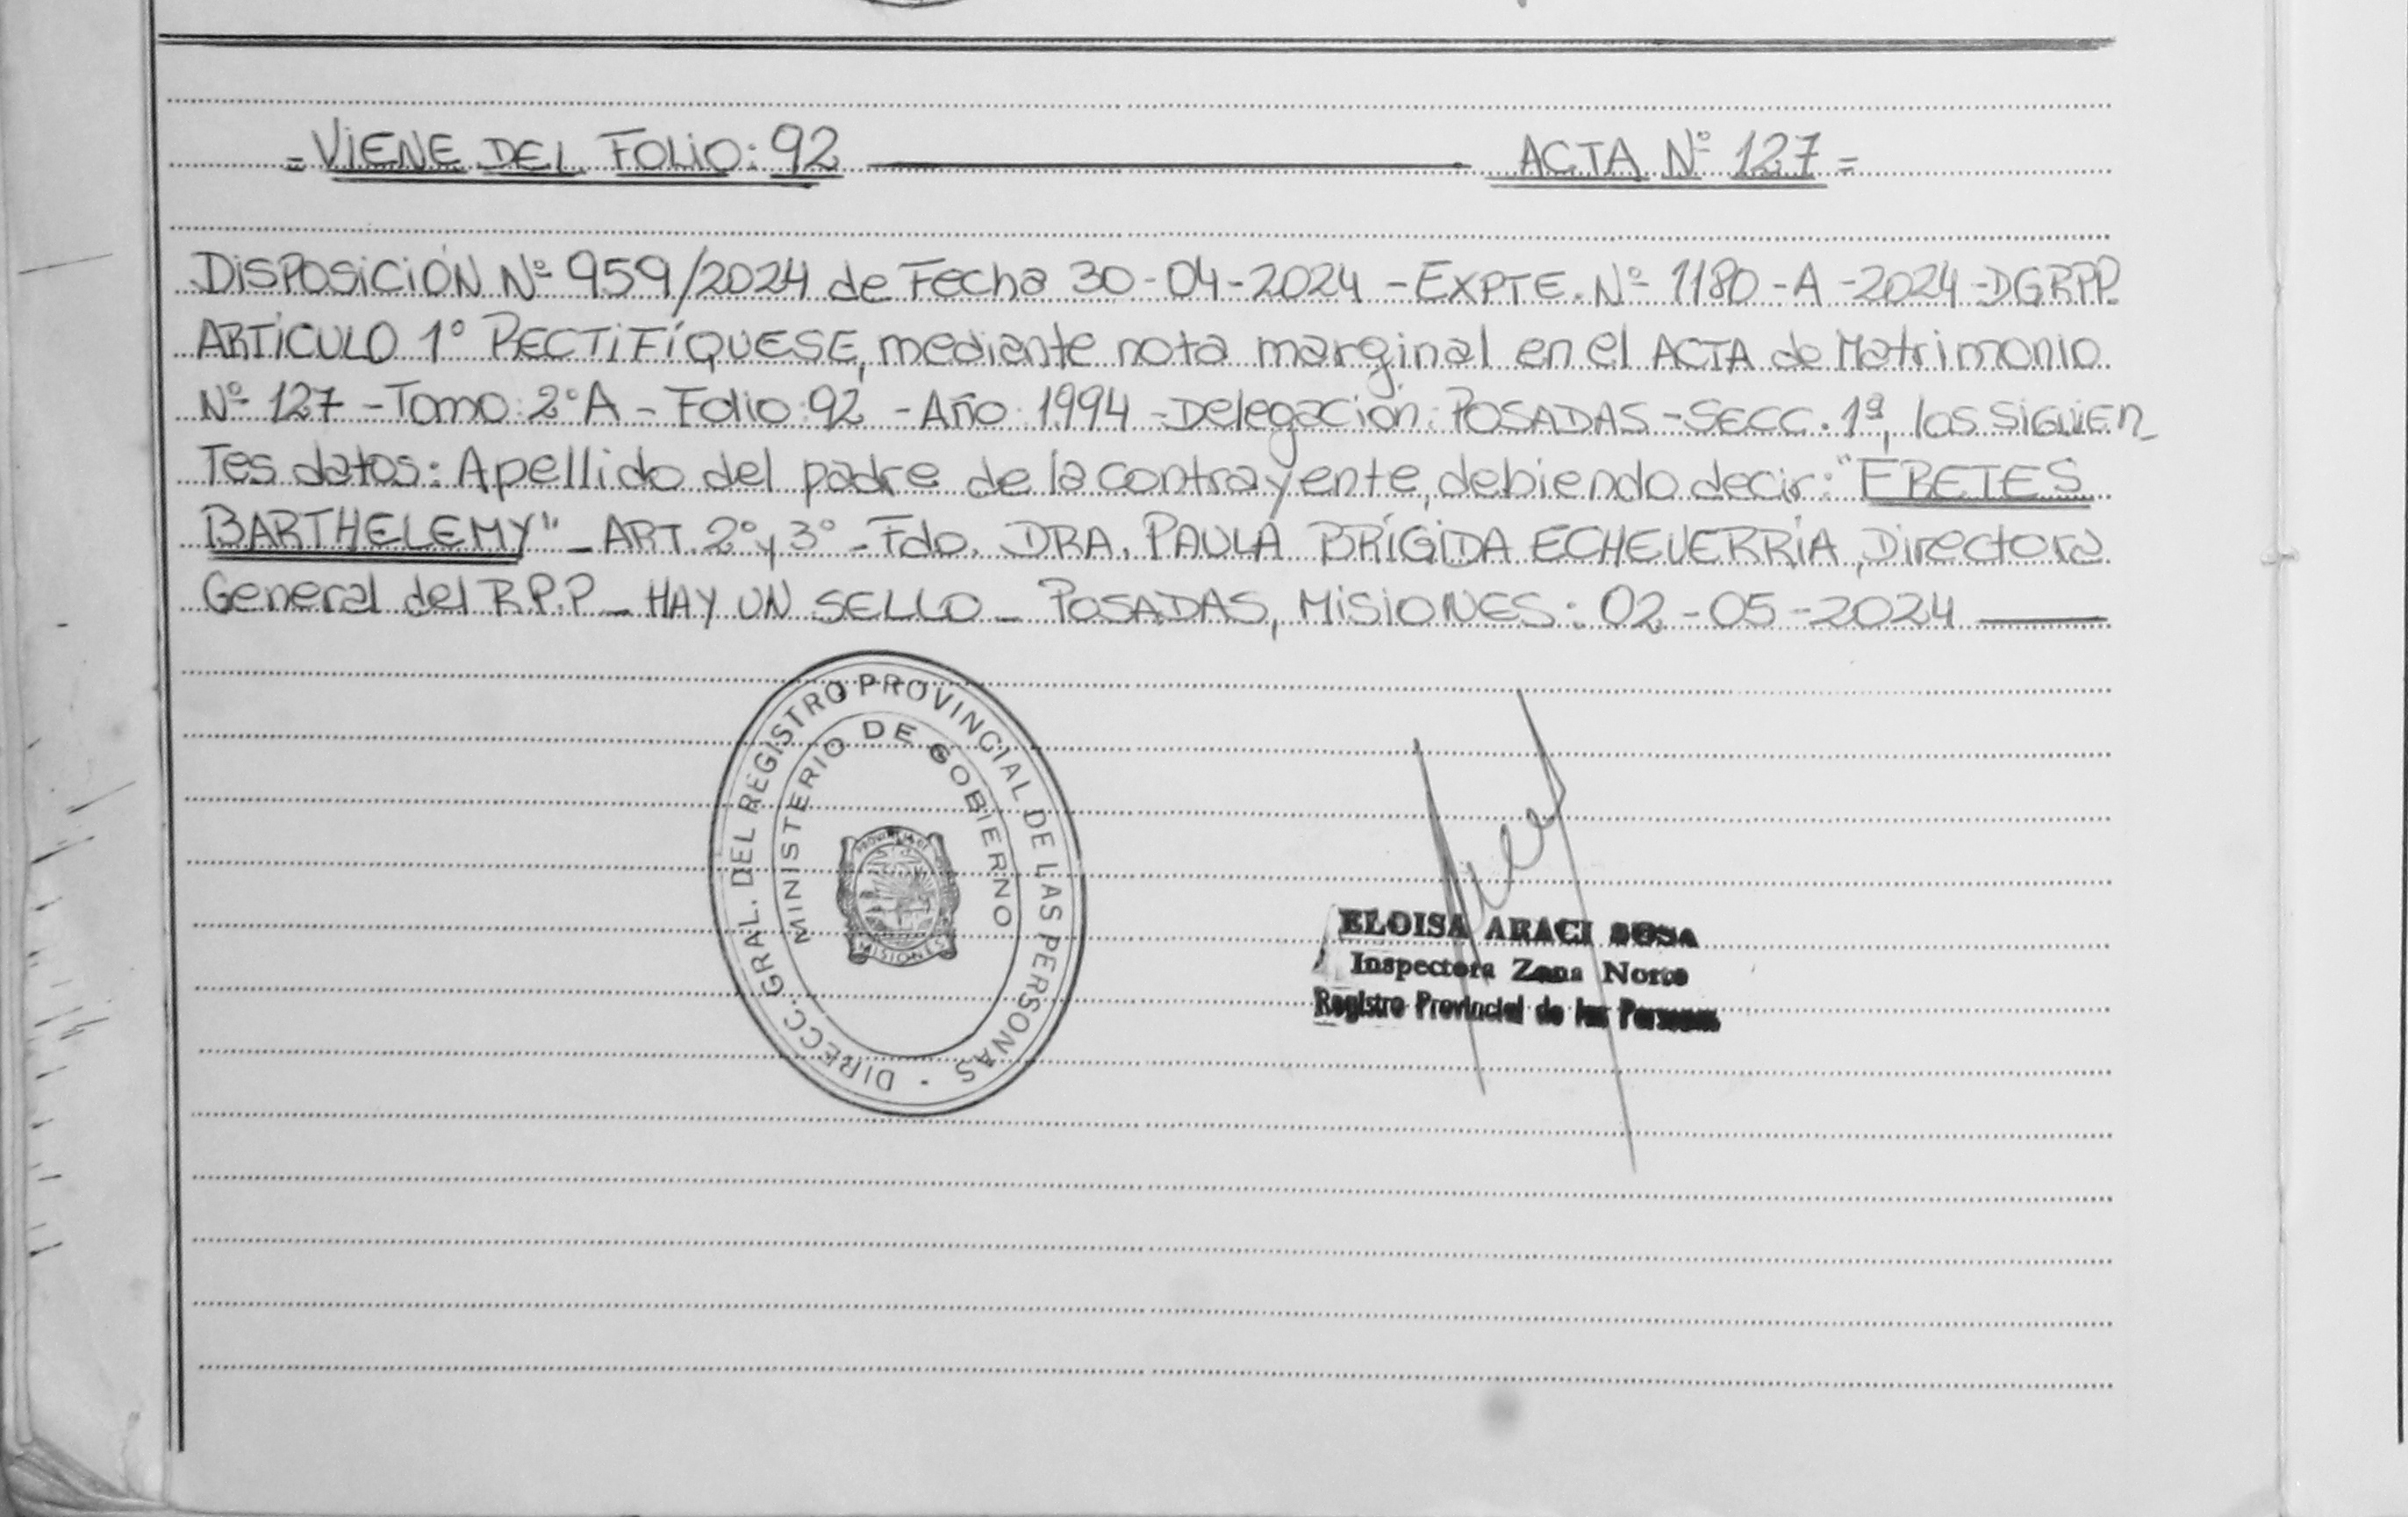 = VIENE DEL FOLIO: 92 ——— ACTA Nº 127 =
DISPOSICIÓN Nº 959/2024 de Fecha 30-04-2024 - EXPTE. Nº 1180 - A - 2024 - DGRPP.
ARTICULO 1º RECTIFÍQUESE, mediante nota marginal en el ACTA de Matrimonio
Nº 127 - Tomo: 2ºA - Folio: 92 - Año: 1994 - Delegación: POSADAS - SECC. 1ª, los SIGUIEN_
Tes datos: Apellido del padre de la contrayente, debiendo decir: "EBETES
BARTHELEMY" - ART. 2º y 3º - Fdo. DRA. PAULA BRÍGIDA ECHEVERRÍA, Directora
General del R.P.P - HAY UN SELLO - POSADAS, MISIONES: 02-05-2024 ———
DIRECC. GRAL. DEL REGISTRO PROVINCIAL DE LAS PERSONAS
MINISTERIO DE GOBIERNO
PROVINCIA DE
MISIONES
ELOISA ARACI SOSA
Inspectora Zona Norte
Registro Provincial de las Personas